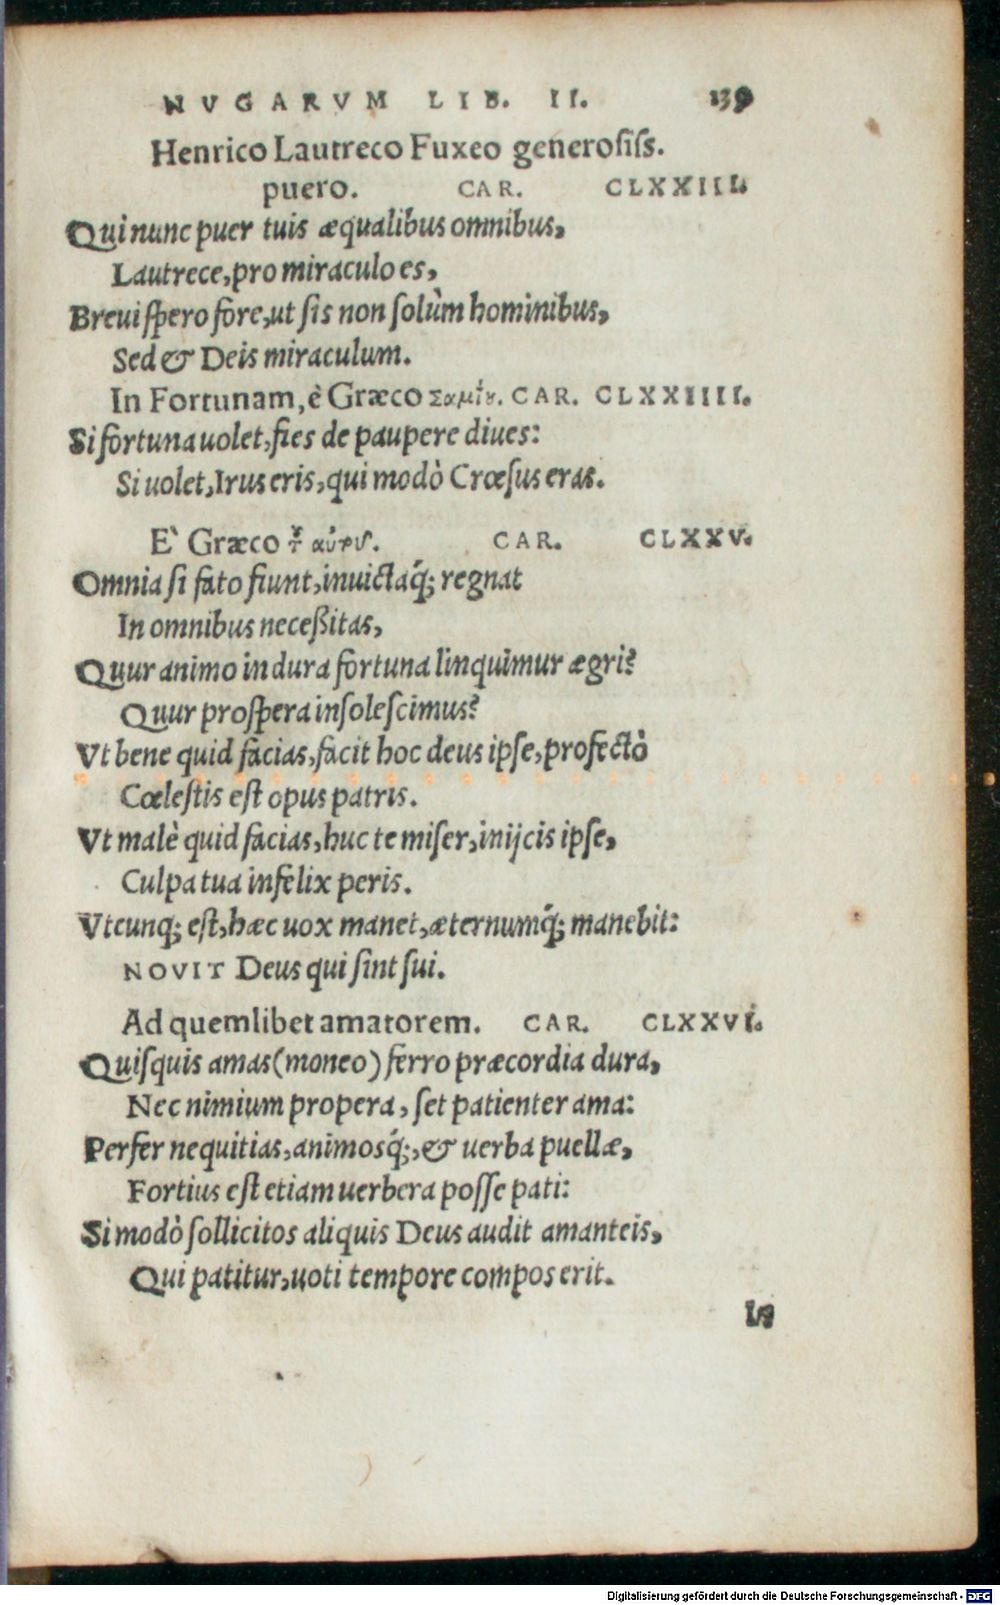 NVGARVM LIB. II. 139
Henrico Lautreco Fuxeo generosiſs.
puero. CAR. CLXXIII.
Qui nunc puer tuis æqualibus omnibus,
Lautrece, pro miraculo es,
Breui ſpero fore, ut ſis non ſolùm hominibus,
Sed & Deis miraculum.
In Fortunam, è Græco Σαμίου. CAR. CLXXIIII.
Si fortuna uolet, fies de paupere diues:
Si uolet, Irus eris, qui modò Crœſus eras.
E` Græco αὐτου. CAR. CLXXV.
Omnia ſi fato fiunt, inuictaq́; regnat
In omnibus neceßitas,
Quur animo in dura fortuna linquimur ægri?
Quur proſpera inſoleſcimus?
Vt bene quid facias, facit hoc deus ipſe, profectò
Cœleſtis eſt opus patris.
Vt malè quid facias, huc te miſer, inijcis ipſe,
Culpa tua infelix peris.
Vtcunq; eſt, hæc uox manet, æternumq́; manebit:
NOVIT Deus qui ſint ſui.
Ad quemlibet amatorem. CAR. CLXXVI.
Quiſquis amas (moneo) ferro præcordia dura,
Nec nimium propera, ſet patienter ama:
Perfer nequitias, animosq́;, & uerba puellæ,
Fortius eſt etiam uerbera poſſe pati:
Si modò ſollicitos aliquis Deus audit amanteis,
Qui patitur, uoti tempore compos erit.
In
Digitalisierung gefördert durch die Deutsche Forschungsgemeinschaft - DFG